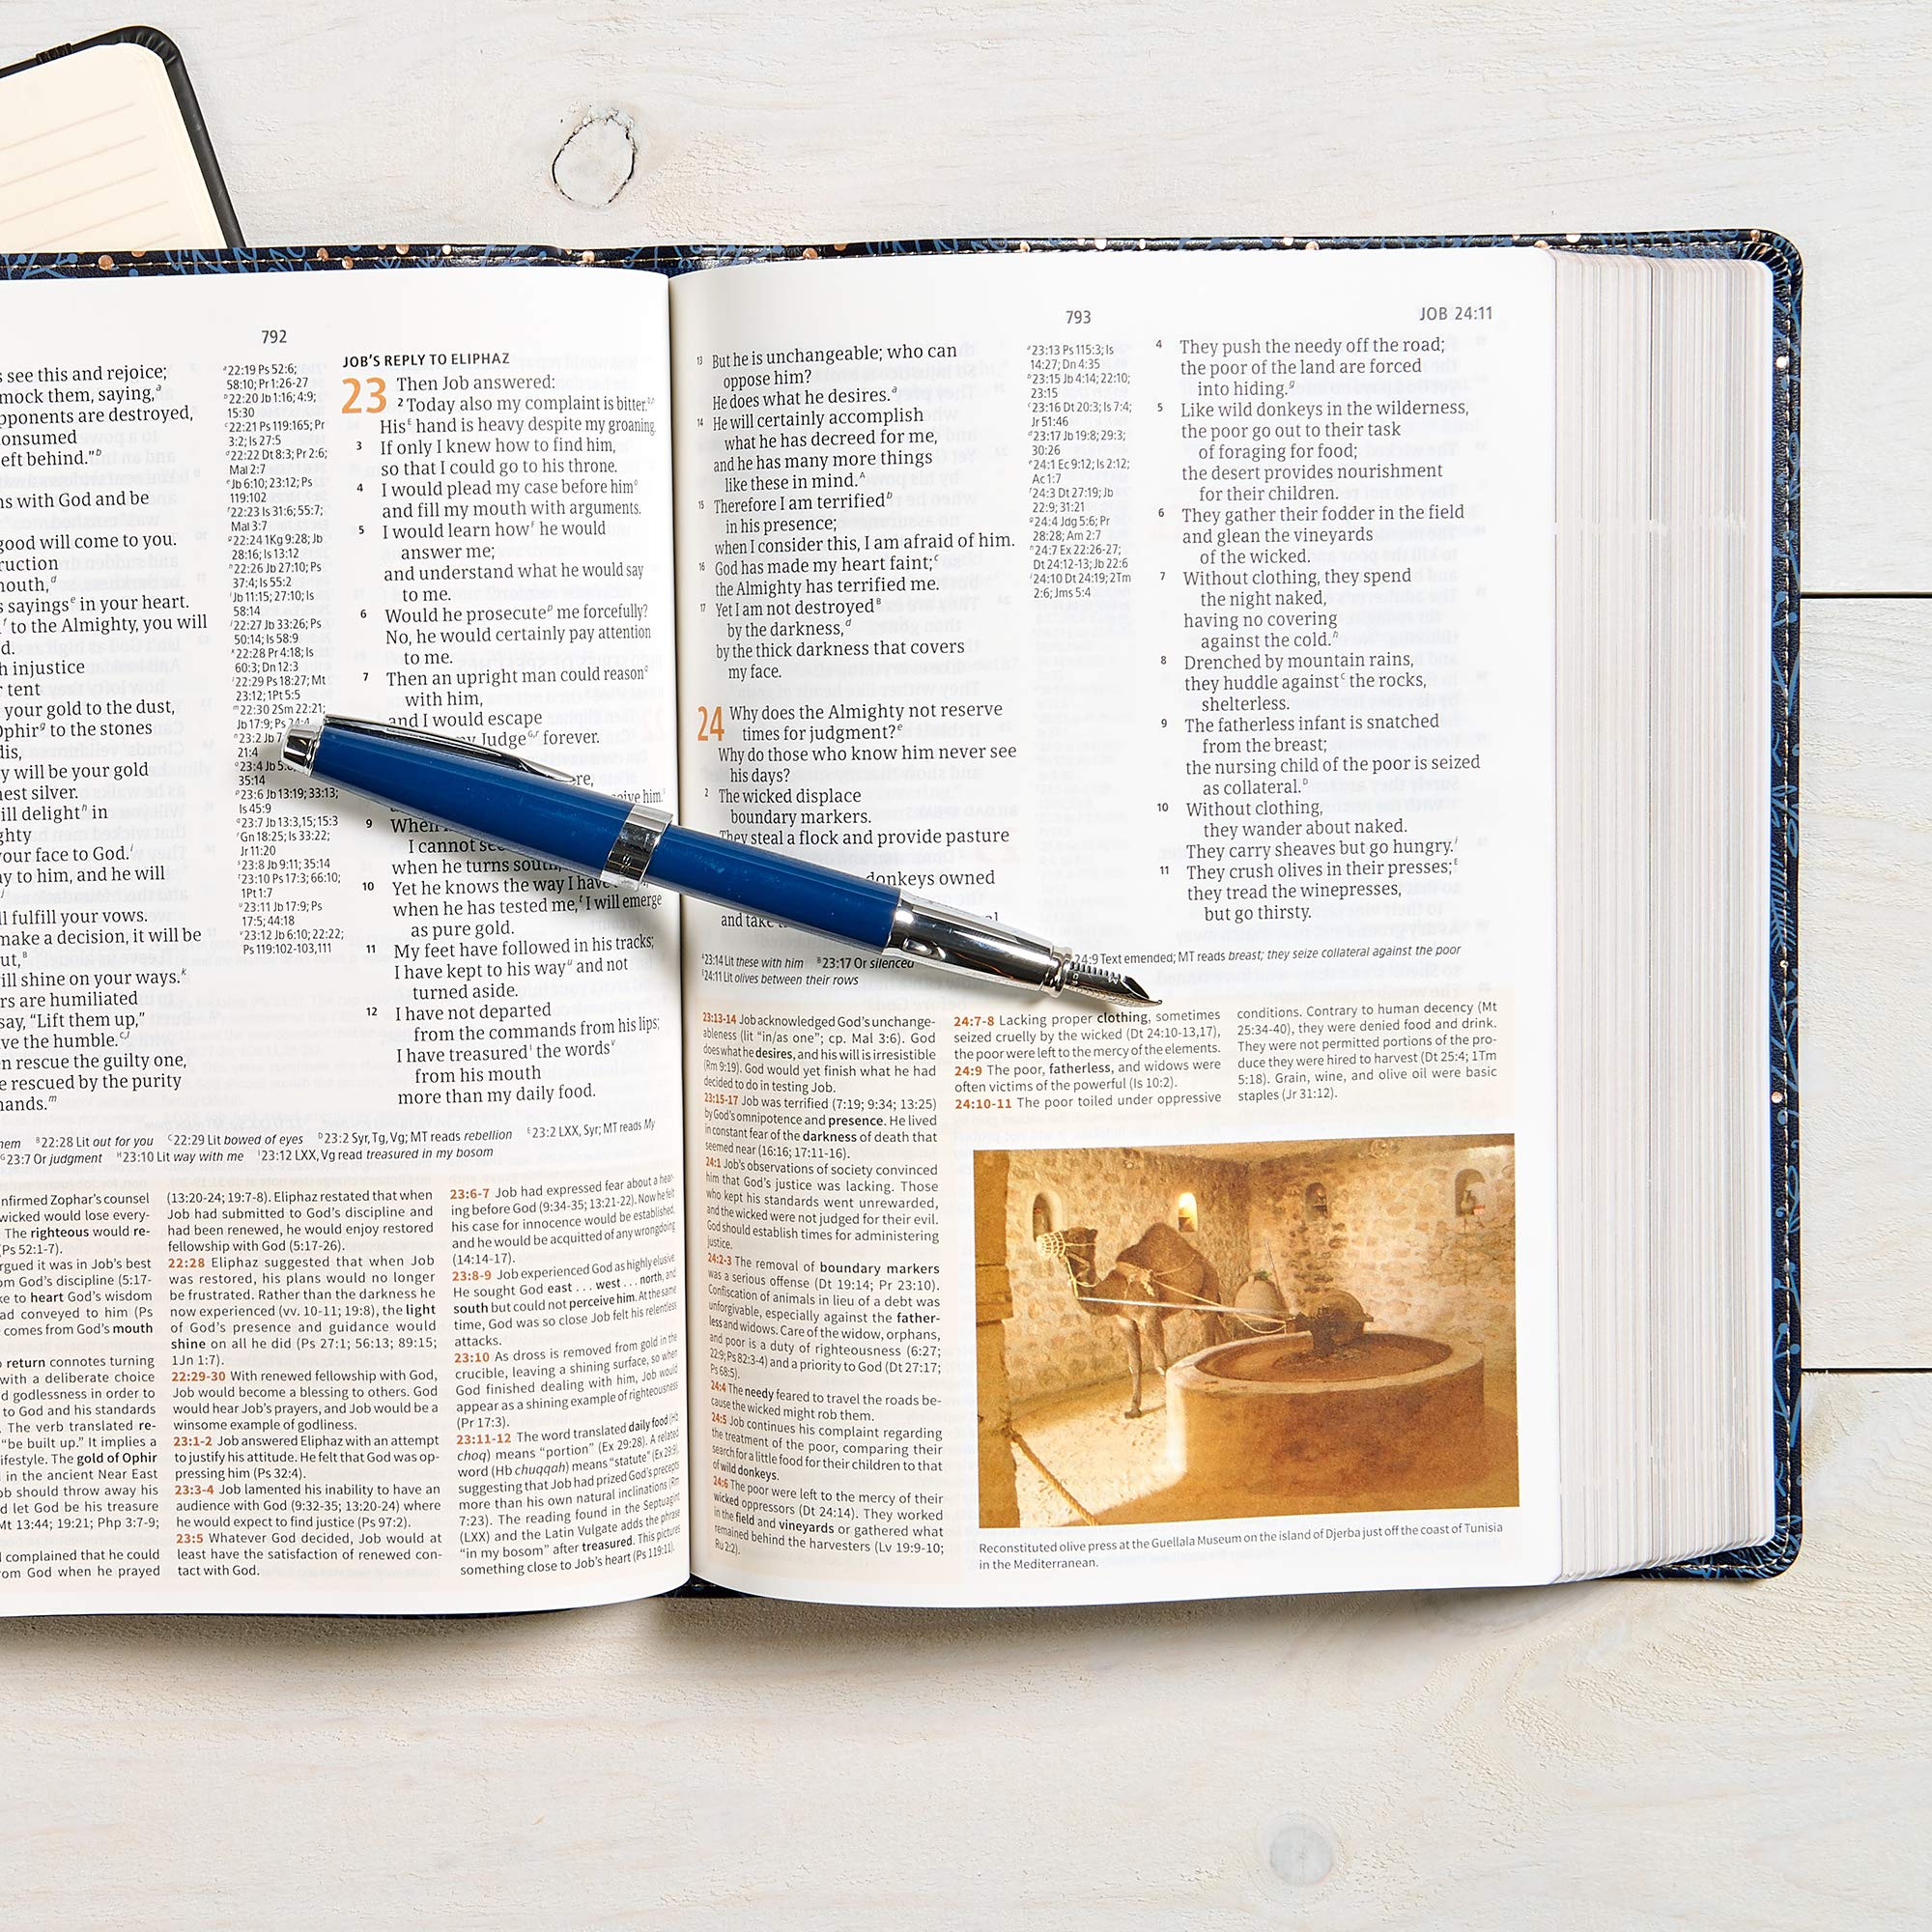 792
s see this and rejoice;
mock them, saying,ᵃ
pponents are destroyed,
onsumed
eft behind."ᵇ
ns with God and be
good will come to you.
ruction
mouth,ᵈ
s sayingsᵉ in your heart.
to the Almighty, you will
d.
h injustice
r tent
your gold to the dust,
Ophirᵍ to the stones
dis,
y will be your gold
nest silver.
ill delightʰ in
ghty
your face to God.ⁱ
ay to him, and he will
l fulfill your vows.
make a decision, it will be
ut,ᴮ
ill shine on your ways.ᵏ
rs are humiliated
say, "Lift them up,"
ve the humble.
n rescue the guilty one,
e rescued by the purity
hands."ᵐ
22:19 Ps 52:6;
58:10; Pr 1:26-27
22:20 Jb 1:16; 4:9;
15:30
22:21 Ps 119:165; Pr
3:2; Is 27:5
22:22 Dt 8:3; Pr 2:6;
Mal 2:7
Jb 6:10; 23:12; Ps
119:102
22:23 Is 31:6; 55:7;
Mal 3:7
22:24 1Kg 9:28; Jb
28:16; Is 13:12
22:26 Jb 27:10; Ps
37:4; Is 55:2
Jb 11:15; 27:10; Is
58:14
22:27 Jb 33:26; Ps
50:14; Is 58:9
22:28 Pr 4:18; Is
60:3; Dn 12:3
22:29 Ps 18:27; Mt
23:12; 1Pt 5:5
22:30 2Sm 22:21;
Jb 17:9; Ps 24:4
23:2 Jb 7
21:4
23:4 Jb 5:8
35:14
23:6 Jb 13:19; 33:13;
Is 45:9
23:7 Jb 13:3,15; 15:3
Gn 18:25; Is 33:22;
Jr 11:20
23:8 Jb 9:11; 35:14
23:10 Ps 17:3; 66:10;
1Pt 1:7
23:11 Jb 17:9; Ps
17:5; 44:18
23:12 Jb 6:10; 22:22;
Ps 119:102-103,111
JOB'S REPLY TO ELIPHAZ
23 Then Job answered:
2 Today also my complaint is bitter.
Hisᴱ hand is heavy despite my groaning.
3 If only I knew how to find him,
so that I could go to his throne.
4 I would plead my case before himᵒ
and fill my mouth with arguments.
5 I would learn howᶠ he would
answer me;
and understand what he would say
to me.
6 Would he prosecuteᵖ me forcefully?
No, he would certainly pay attention
to me.
7 Then an upright man could reasonᑫ
with him,
and I would escape
my Judge forever.
re,
eive him.
9 When
I cannot see
when he turns south,
10 Yet he knows the way I have
when he has tested me,ᵗ I will emerge
as pure gold.
11 My feet have followed in his tracks;
I have kept to his wayᵘ and not
turned aside.
12 I have not departed
from the commands from his lips;
I have treasuredᴵ the wordsᵛ
from his mouth
more than my daily food.
hem ᴮ22:28 Lit out for you ᶜ22:29 Lit bowed of eyes ᴰ23:2 Syr, Tg, Vg; MT reads rebellion ᴱ23:2 LXX, Syr; MT reads My
ᴳ23:7 Or judgment ᴴ23:10 Lit way with me ᴵ23:12 LXX, Vg read treasured in my bosom
nfirmed Zophar's counsel
wicked would lose every-
The righteous would re-
(Ps 52:1-7).
rgued it was in Job's best
om God's discipline (5:17-
ke to heart God's wisdom
ad conveyed to him (Ps
comes from God's mouth
return connotes turning
with a deliberate choice
d godlessness in order to
to God and his standards
The verb translated re-
"be built up." It implies a
ifestyle. The gold of Ophir
in the ancient Near East
ob should throw away his
d let God be his treasure
Mt 13:44; 19:21; Php 3:7-9;
complained that he could
rom God when he prayed
(13:20-24; 19:7-8). Eliphaz restated that when
Job had submitted to God's discipline and
had been renewed, he would enjoy restored
fellowship with God (5:17-26).
22:28 Eliphaz suggested that when Job
was restored, his plans would no longer
be frustrated. Rather than the darkness he
now experienced (vv. 10-11; 19:8), the light
of God's presence and guidance would
shine on all he did (Ps 27:1; 56:13; 89:15;
1Jn 1:7).
22:29-30 With renewed fellowship with God,
Job would become a blessing to others. God
would hear Job's prayers, and Job would be a
winsome example of godliness.
23:1-2 Job answered Eliphaz with an attempt
to justify his attitude. He felt that God was op-
pressing him (Ps 32:4).
23:3-4 Job lamented his inability to have an
audience with God (9:32-35; 13:20-24) where
he would expect to find justice (Ps 97:2).
23:5 Whatever God decided, Job would at
least have the satisfaction of renewed con-
tact with God.
23:6-7 Job had expressed fear about a hear-
ing before God (9:34-35; 13:21-22). Now he felt
his case for innocence would be established,
and he would be acquitted of any wrongdoing
(14:14-17).
23:8-9 Job experienced God as highly elusive.
He sought God east . . . west . . . north, and
south but could not perceive him. At the same
time, God was so close Job felt his relentless
attacks.
23:10 As dross is removed from gold in the
crucible, leaving a shining surface, so when
God finished dealing with him, Job would
appear as a shining example of righteousness
(Pr 17:3).
23:11-12 The word translated daily food (Hb
choq) means "portion" (Ex 29:28). A related
word (Hb chuqqah) means "statute" (Ex 29:9),
suggesting that Job had prized God's precepts
more than his own natural inclinations (Rm
7:23). The reading found in the Septuagint
(LXX) and the Latin Vulgate adds the phrase
"in my bosom" after treasured. This pictures
something close to Job's heart (Ps 119:11).
793
JOB 24:11
13 But he is unchangeable; who can
oppose him?
He does what he desires.ᵃ
14 He will certainly accomplish
what he has decreed for me,
and he has many more things
like these in mind.ᴬ
15 Therefore I am terrifiedᵇ
in his presence;
when I consider this, I am afraid of him.
16 God has made my heart faint;ᶜ
the Almighty has terrified me.
17 Yet I am not destroyedᴮ
by the darkness,ᵈ
by the thick darkness that covers
my face.
24 Why does the Almighty not reserve
times for judgment?ᵉ
Why do those who know him never see
his days?
2 The wicked displace
boundary markers.
They steal a flock and provide pasture
donkeys owned
and take
23:13 Ps 115:3; Is
14:27; Dn 4:35
23:15 Jb 4:14; 22:10;
23:15
23:16 Dt 20:3; Is 7:4;
Jr 51:46
23:17 Jb 19:8; 29:3;
30:26
24:1 Ec 9:12; Is 2:12;
Ac 1:7
24:3 Dt 27:19; Jb
22:9; 31:21
24:4 Jdg 5:6; Pr
28:28; Am 2:7
24:7 Ex 22:26-27;
Dt 24:12-13; Jb 22:6
24:10 Dt 24:19; 2Tm
2:6; Jms 5:4
4 They push the needy off the road;
the poor of the land are forced
into hiding.ᵍ
5 Like wild donkeys in the wilderness,
the poor go out to their task
of foraging for food;
the desert provides nourishment
for their children.
6 They gather their fodder in the field
and glean the vineyards
of the wicked.
7 Without clothing, they spend
the night naked,
having no covering
against the cold.ʰ
8 Drenched by mountain rains,
they huddle againstᶜ the rocks,
shelterless.
9 The fatherless infant is snatched
from the breast;
the nursing child of the poor is seized
as collateral.ᴰ
10 Without clothing,
they wander about naked.
They carry sheaves but go hungry.ⁱ
11 They crush olives in their presses;ᴱ
they tread the winepresses,
but go thirsty.
ᴬ23:14 Lit these with him ᴮ23:17 Or silenced 24:9 Text emended; MT reads breast; they seize collateral against the poor
ᴱ24:11 Lit olives between their rows
23:13-14 Job acknowledged God's unchange-
ableness (lit "in/as one"; cp. Mal 3:6). God
does what he desires, and his will is irresistible
(Rm 9:19). God would yet finish what he had
decided to do in testing Job.
23:15-17 Job was terrified (7:19; 9:34; 13:25)
by God's omnipotence and presence. He lived
in constant fear of the darkness of death that
seemed near (16:16; 17:11-16).
24:1 Job's observations of society convinced
him that God's justice was lacking. Those
who kept his standards went unrewarded,
and the wicked were not judged for their evil.
God should establish times for administering
justice.
24:2-3 The removal of boundary markers
was a serious offense (Dt 19:14; Pr 23:10).
Confiscation of animals in lieu of a debt was
unforgivable, especially against the father-
less and widows. Care of the widow, orphans,
and poor is a duty of righteousness (6:27;
22:9; Ps 82:3-4) and a priority to God (Dt 27:17;
Ps 68:5).
24:4 The needy feared to travel the roads be-
cause the wicked might rob them.
24:5 Job continues his complaint regarding
the treatment of the poor, comparing their
search for a little food for their children to that
of wild donkeys.
24:6 The poor were left to the mercy of their
wicked oppressors (Dt 24:14). They worked
in the field and vineyards or gathered what
remained behind the harvesters (Lv 19:9-10;
Ru 2:2).
24:7-8 Lacking proper clothing, sometimes
seized cruelly by the wicked (Dt 24:10-13,17),
the poor were left to the mercy of the elements.
24:9 The poor, fatherless, and widows were
often victims of the powerful (Is 10:2).
24:10-11 The poor toiled under oppressive
conditions. Contrary to human decency (Mt
25:34-40), they were denied food and drink.
They were not permitted portions of the pro-
duce they were hired to harvest (Dt 25:4; 1Tm
5:18). Grain, wine, and olive oil were basic
staples (Jr 31:12).
Reconstituted olive press at the Guellala Museum on the island of Djerba just off the coast of Tunisia
in the Mediterranean.